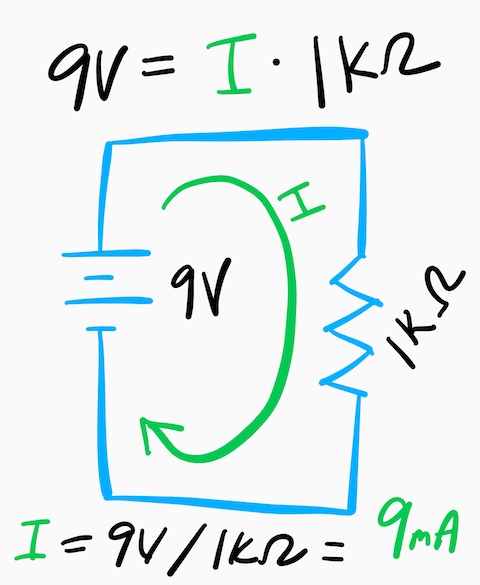 9V = I · 1KΩ
I
9V
1KΩ
I = 9V/1KΩ = 9mA